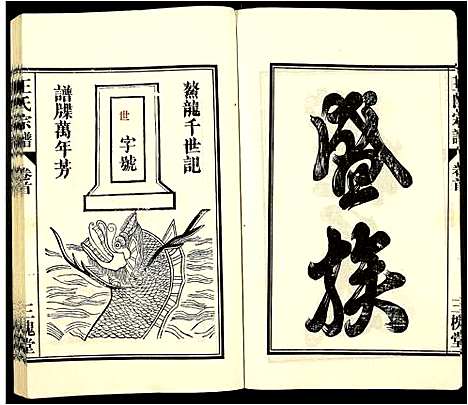 盛族
三槐堂
鰲龍千世記
世字號
譜牒萬年芳
王氏宗譜
卷首
三槐堂